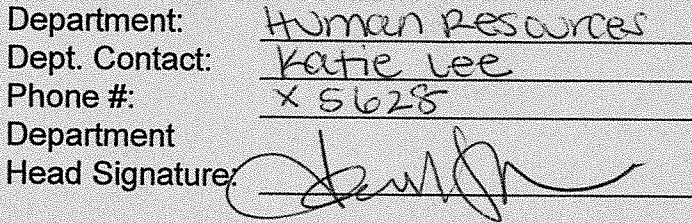 Department: Human Resources
Dept. Contact: Katie Lee
Phone #: x 5628
Department
Head Signature: